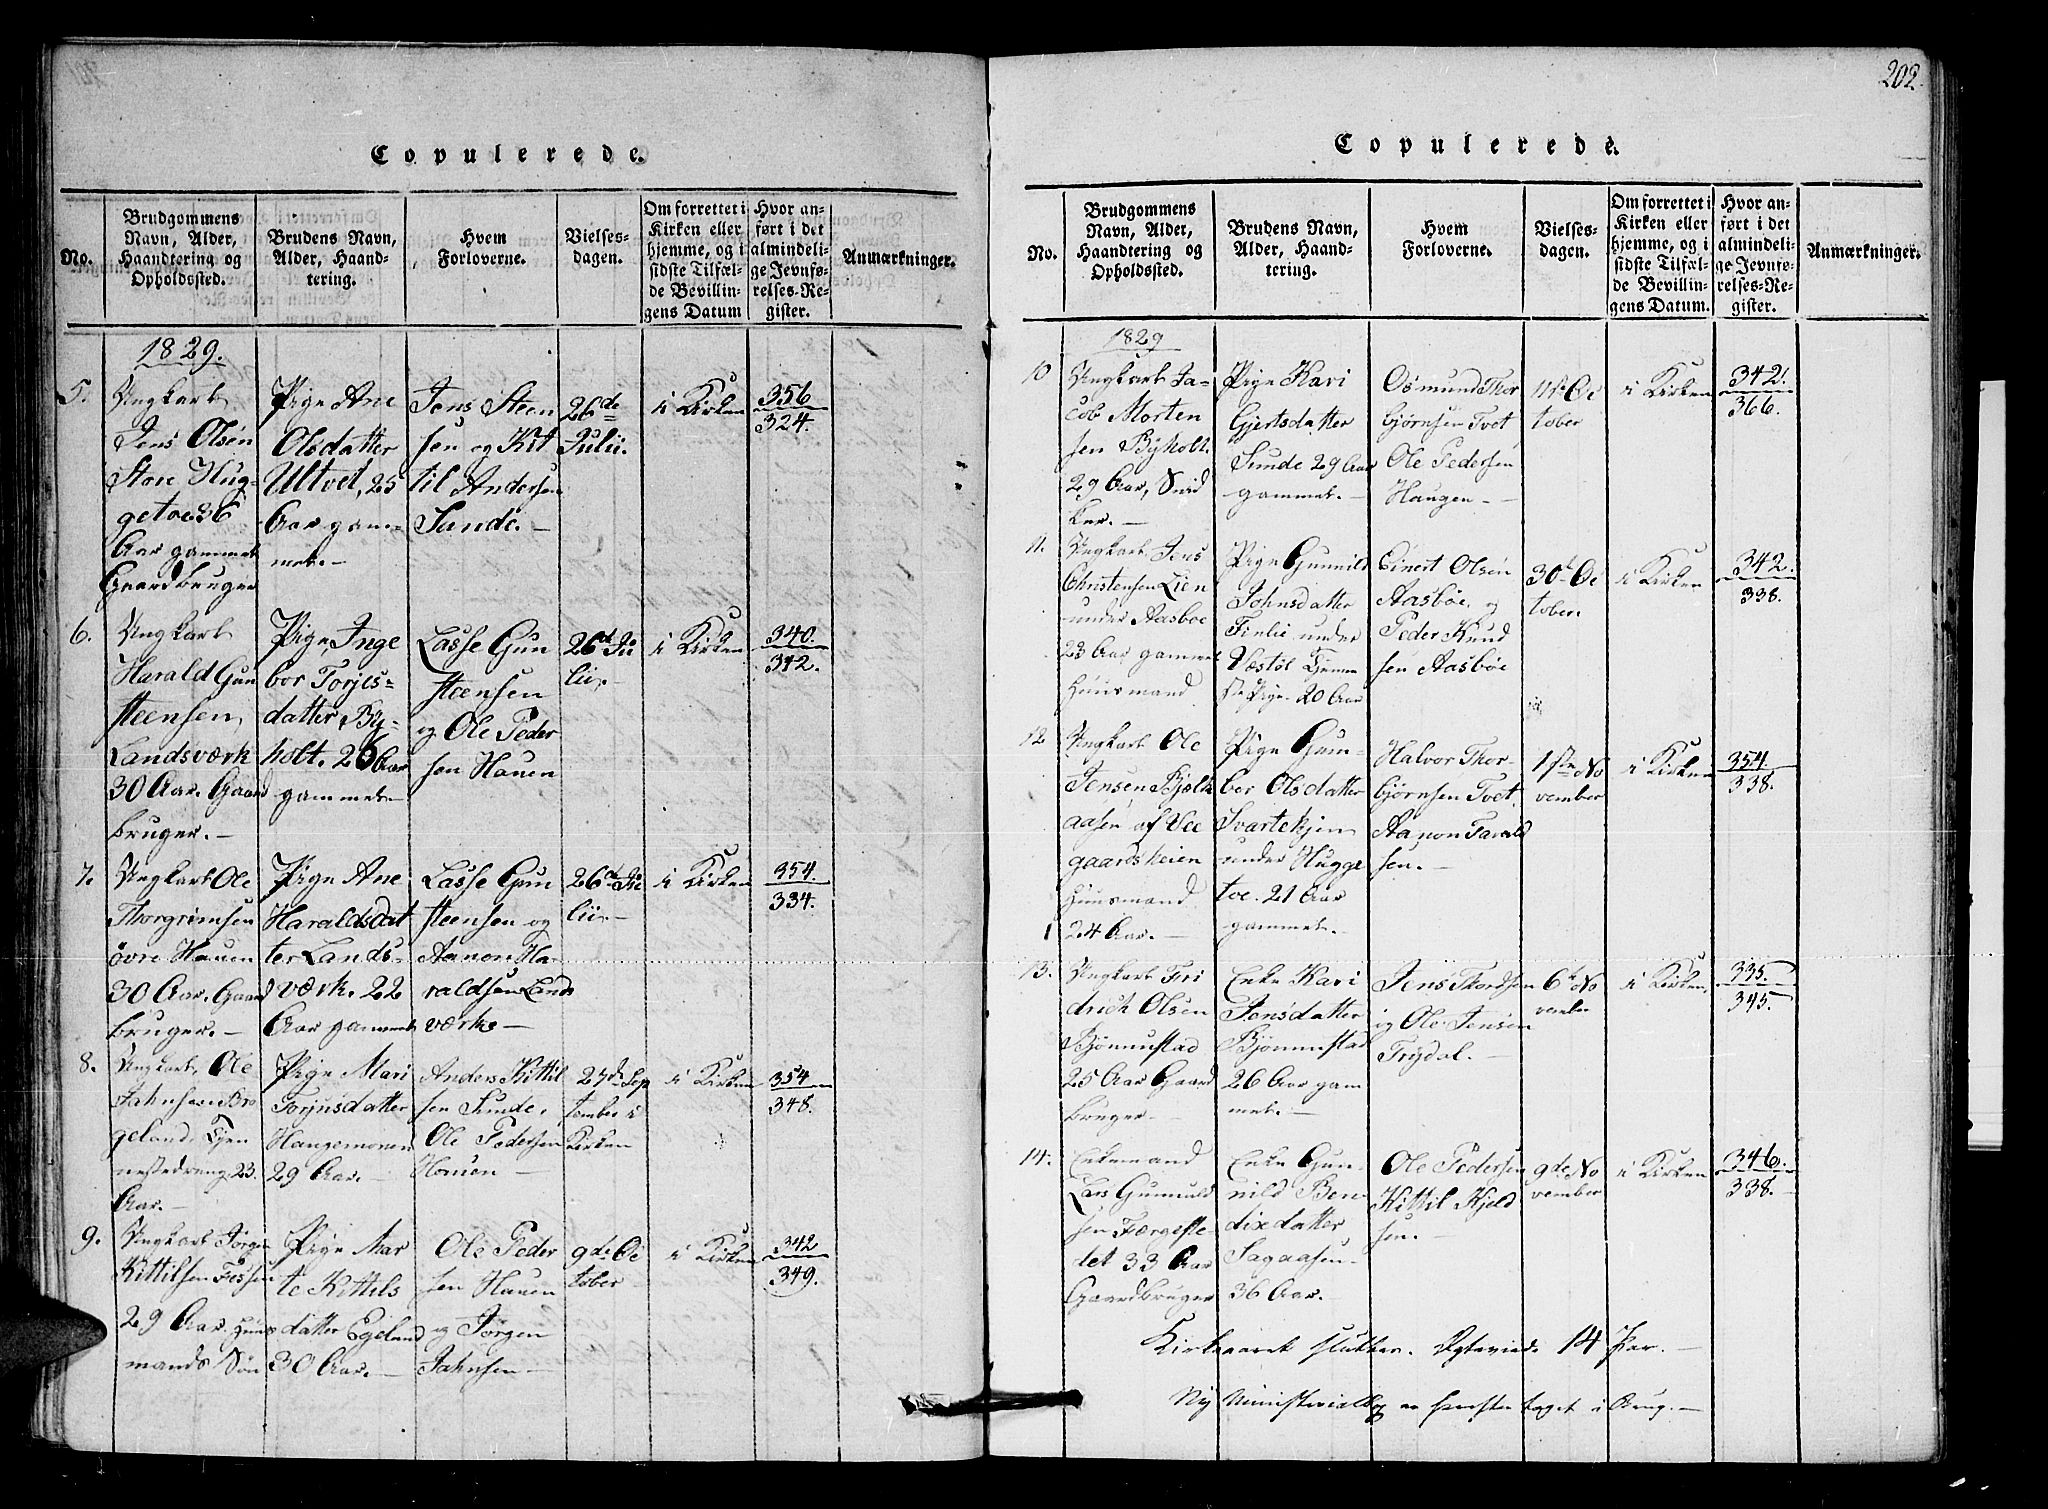 202.
Copulerede.
No.
Brudgommens
Navn, Alder,
Haandtering og
Opholdssted.
Brudens Navn,
Alder, Haand-
tering.
Hvem
Forloverne.
Vielses-
dagen.
Om forrettet i
Kirken eller
hjemme, og i
sidste Tilfæl-
de Bevillin-
gens Datum
Hvor an-
ført i det
almindeli-
ge Jevnfø-
relses-Re-
gister.
Anmærkninger.
1829.
5.
Ungkarl
Jens Olsen
Store Hug-
getoe 36
Aar gammel
Gaardbruger
Pige Ane
Olsdatter
Ultvet, 25
Aar gam-
mel.-
Jens Steen
sen og Kit
til Andersen
Sunde.-
26de
Julii.
i Kirken
356
324.
6.
Ungkarl
Harald Gun
steensen,
Landsværk
30 Aar. Gaard
bruger.-
Pige Inge
bor Torjes-
datter By-
holt. 26 Aar
gammel-
Lasse Gun
steensen
og Ole Peder
sen Hauen
26d Ju
lii-
i Kirken
340.
342.
7.
Ungkarl Ole
Thorgrimsen
øvre Hauen
30 Aar. Gaard
bruger.-
Pige Ane
Haraldsdat
ter Lands-
værk. 22
Aar gammel
Lasse Gun
steensen og
Aanon Ha-
raldsen Lands
værk-
26d Ju
lii-
i Kirken
354.
334.
8.
Ungkarl, Ole
Jahnsen
geland. Tjen
nestedreng. 23.
Aar.-
Pige Mari
Torjusdatter
Haugemonen
29 Aar.-
Anders Kittil
sen Sunde,
Ole Pedersen
Hauen-
27d Sep
tember i
Kirken
i Kirken
354
348.
9.
Ungkarl Jørgen
Kittilsen Fossen
29 Aar. Huus
mands Søn
Pige Mar
te Kittils
datter Egeland
30 Aar.-
Ole Peder
sen Hauen
og Jørgen
Jahnsen-
9de Oc
tober
i Kirken
342
349.
Copulerede.
No.
Brudgommens
Navn, Alder,
Haandtering og
Opholdssted.
Brudens Navn,
Alder, Haand-
tering.
Hvem
Forloverne.
Vielses-
dagen.
Om forrettet i
Kirken eller
hjemme, og i
sidste Tilfæl-
de Bevillin-
gens Datum.
Hvor an-
ført i det
almindeli-
ge Jevnfø-
relses-Re-
gister.
Anmærkninger.
1829
10
Ungkarl Ja-
cob Morten
sen Byholt.
29 Aar, Snid
ker.-
Pige Kari
Gjertsdatter
Sunde 29 Aar
gammel.-
Osmund Thor
bjørnsen Tvet
Ole Pedersen
Haugen-
11te Oc
tober
i Kirken
342.
366.
11.
Ungkarl Jens
Christensen Lien
under Aasboe
23 Aar gammel
Huusmand
Pige Gunnild
Johnsdatter
Finlie under
Væstøl Tjenen
de Pige 20 Aar
Einert Olsen
Aasbøe, og
Peder Knud
sen Aasbøe
30t Oc
tober.
i Kirken
342.
338.
12
Ungkarl Ole
Jensen Bjelk
aasen af Vee
gaardsheien
Huusmand
24 Aar.-
Pige Gum-
bor Olsdatter
Svartekjen
under Hugge
toe. 21 Aar
gammel.
Halvor Thor-
bjørnsen Tvet,
Aanon Tarald
sen.-
1ste No
vember
i Kirken
354.
338.
13.
Ungkarl Fri
drich Olsen
Bjønnustad
25 Aar Gaard
bruger-
Enke Kari
Jensdatter
Bjønnustad
26 Aar gam
mel.-
Jens Thordsen
og Ole Jensen
Trydal.-
6t No
vember
i Kirken
335.
345.
14.
Enkemand
Lars Gunnuld
sen Færgeste
det 33 Aar
Gaardbruger
Enke Gun-
nild Ben-
dixdatter
Sagaasen-
36 Aar.-
Ole Pedersen
Kittil Kjeld
sen.-
9de No
vember
i Kirken
346.
338.
Kirkeaaret slutter. Ægteviede 14 Par.-
Ny Ministerialbog er herefter taget i Brug.-